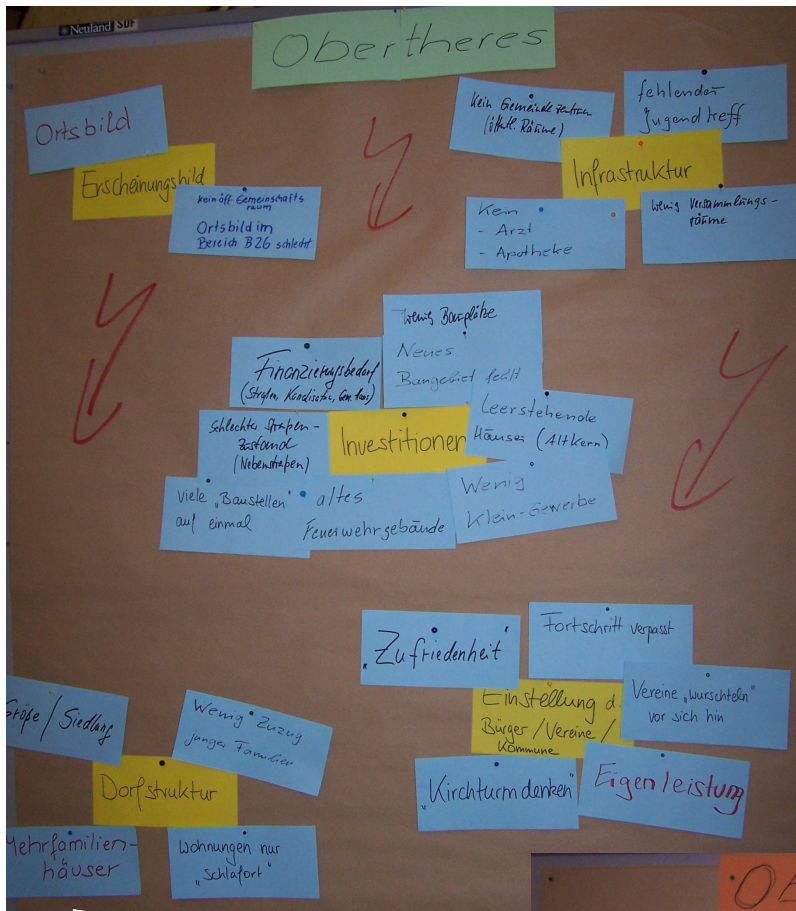 Neuland
Obertheres
Ortsbild
Erscheinungsbild
kein öff. Gemeinschafts
raum
Ortsbild im
Bereich B26 schlecht
Kein Gemeindezentrum
(öffentl. Räume)
fehlender
Jugendtreff
Infrastruktur
Kein
- Arzt
- Apotheke
wenig Versammlungs-
räume
wenig Bauplätze
Neues
Baugebiet fehlt
Finanzierungsbedarf
(Straßen, Kanalisation, Gem.haus)
Schlechter Straßen-
zustand
(Nebenstraßen)
Investitionen
Leerstehende
Häuser (Altkern)
Viele „Baustellen"
auf einmal
altes
Feuerwehrgebäude
Wenig
Klein-Gewerbe
„Zufriedenheit"
Fortschritt verpasst
Einstellung d.
Bürger/Vereine/
Kommune
Vereine „wurschteln"
vor sich hin
„Kirchturmdenken"
Eigenleistung
Größe/Siedlung
Wenig Zuzug
junger Familien
Dorfstruktur
Mehrfamilien-
häuser
Wohnungen nur
„Schlafort"